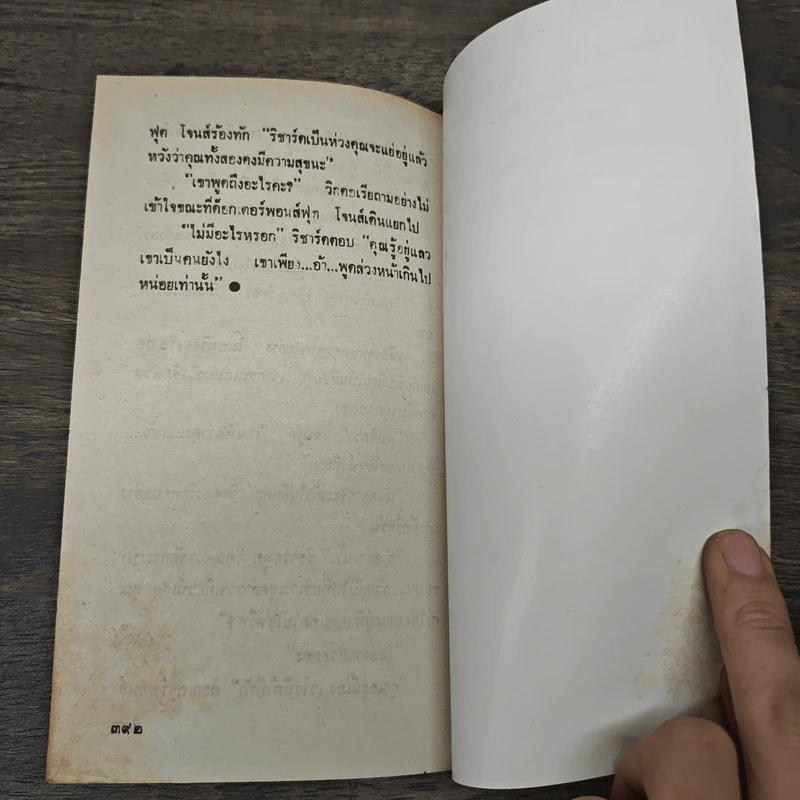 ฟุต โจนส์ร้องทัก “ริชาร์ดเป็นห่วงคุณจะแย่อยู่แล้ว
หวังว่าคุณทั้งสองคงมีความสุขนะ”
“เขาพูดถึงอะไรคะ?” วิกตอเรียถามอย่างไม่
เข้าใจขณะที่ด็อกเตอร์พอนส์ฟุต โจนส์เดินแยกไป
“ไม่มีอะไรหรอก” ริชาร์ดตอบ “คุณรู้อยู่แลว
เขาเป็นคนยังไง เขาเพียง...อ้า...พูดล่วงหน้าเกินไป
หน่อยเท่านั้น” ●
๓๙๒